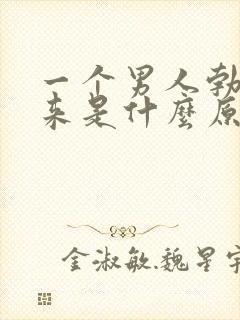 一个男人勃
来是什麼原
金淑敏魏星宇